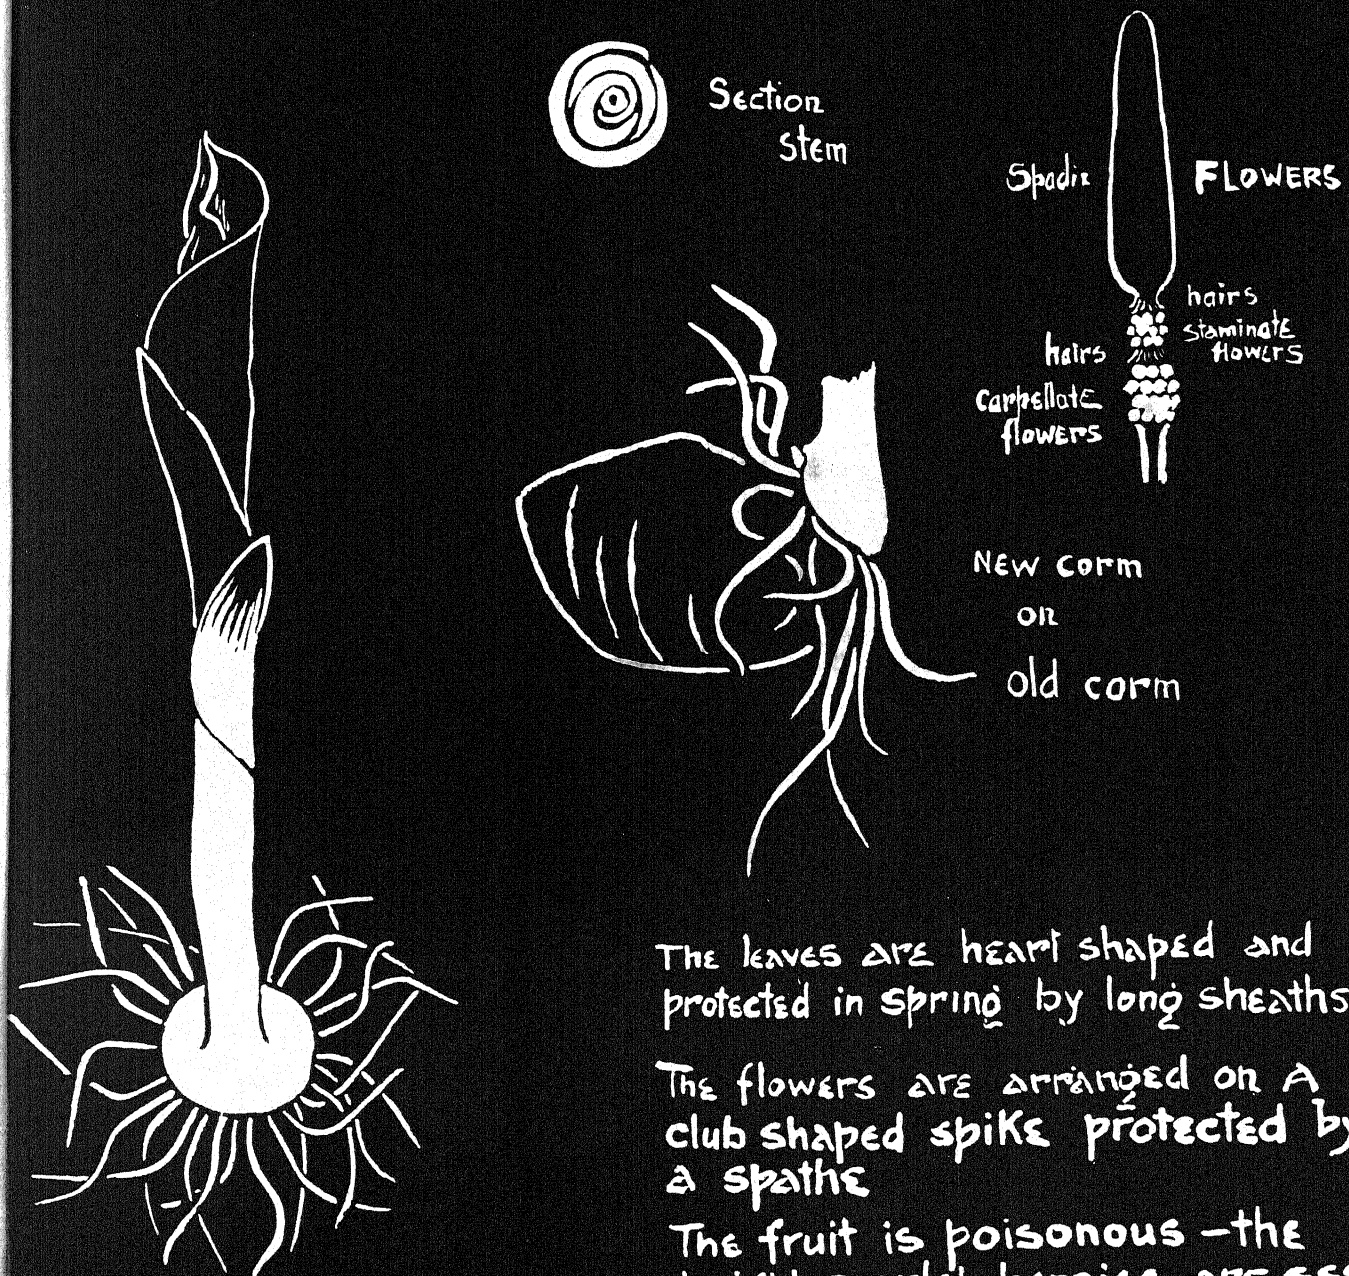 Section
stem
Spadix FLOWERS
hairs
staminate
flowers
hairs
carpellate
flowers
New corm
on
old corm
The leaves are heart shaped and
protected in spring by long sheaths
The flowers are arranged on a
club shaped spike protected by
a spathe
The fruit is poisonous – the
berries are